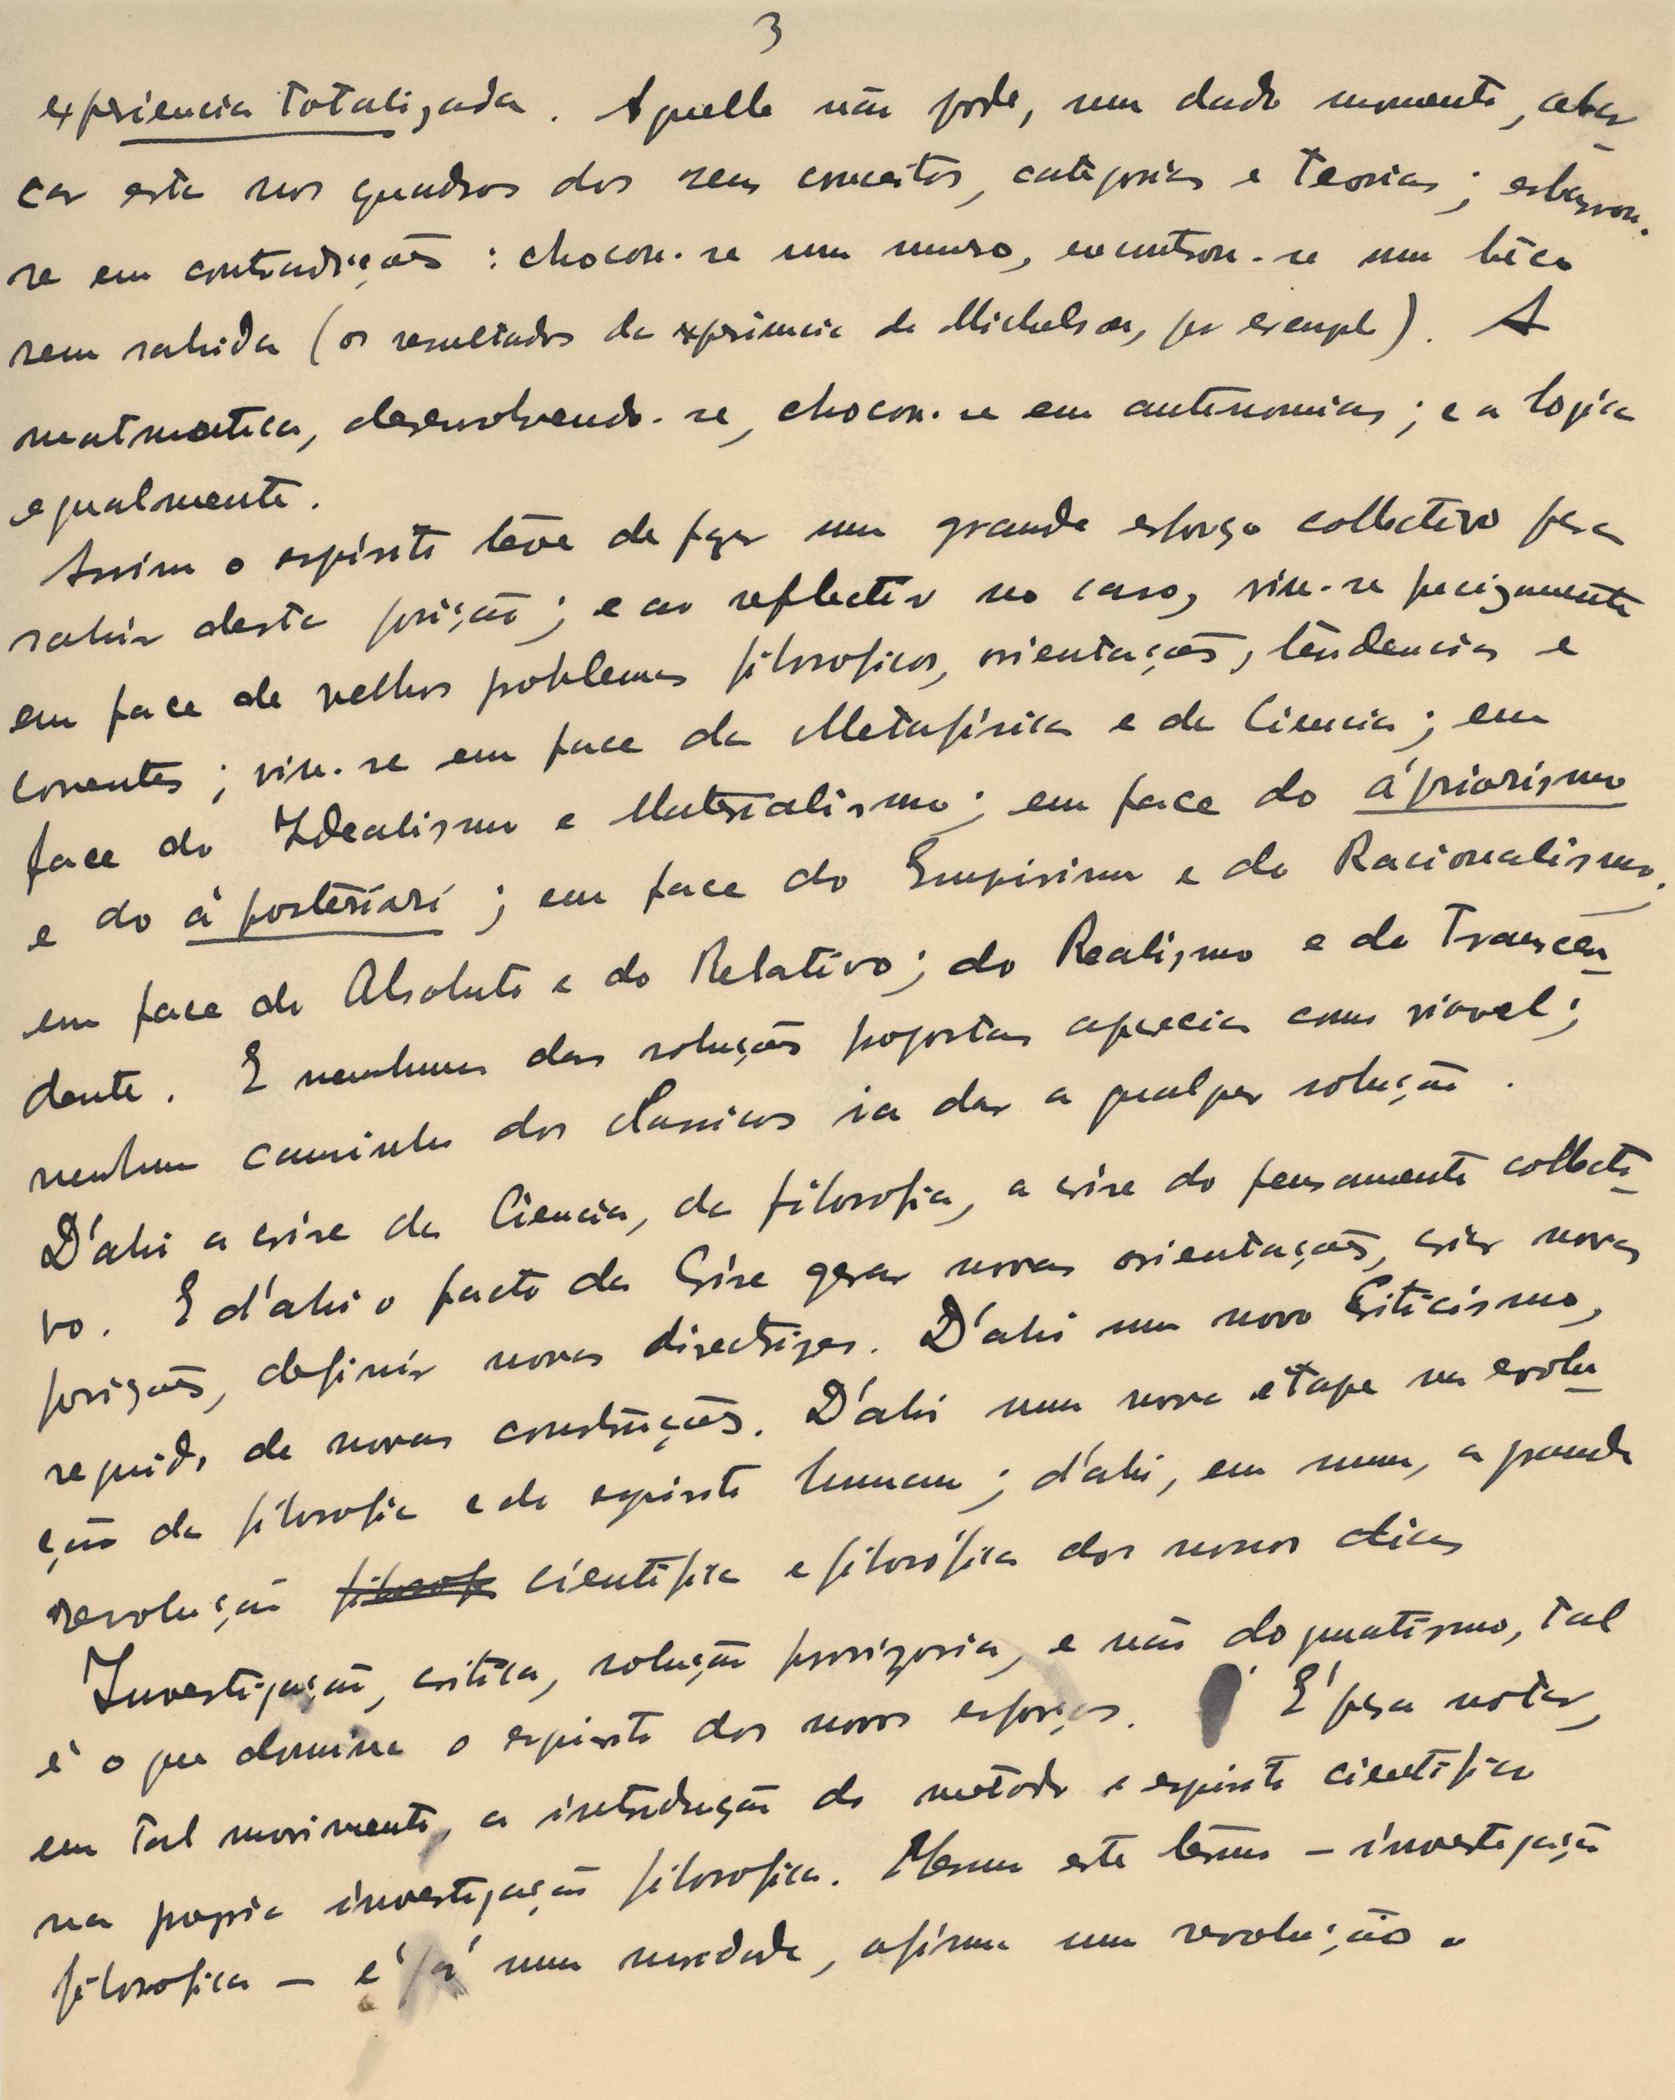 3
experiencia totalizada. Aquelle não pode, num dado momento, abar
car esta nos quadros dos seus conceitos, categorias e teorias; esbarrou-
se em contradições: chocou-se um muro, encontrou-se um bêco
sem sahida (os resultados da experiencia de Michelson, por exemplo). A
matmatica, desenvolvendo-se, chocou-se em antinomias; e a logica
egualmente.
Assim o espirito têve de fazer um grande esforço collectivo para
sahir desta posição; e ao reflectir no caso, viu-se precizamente
em face de velhos problemas filosoficos, orientações, tendencias e
correntes; viu-se em face da Metafísica e da Ciencia; em
face do Idealismo e Materialismo; em face do á priorismo
e do á posteriori; em face do Empirismo e do Racionalismo,
em face do Absoluto e do Relativo; do Realismo e do Transcen
dente. E nenhuma das soluções propostas aparecia como viavel;
nenhum caminho dos classicos ia dar a qualquer solução.
D'ahi a crise da Ciencia, da filosofia, a crise do pensamento collecti
vo. E d'ahi o facto da Crise gerar novas orientações, criar novas
posições, definir novas directrizes. D'ahi um novo Criticismo,
seguido de novas construções. D'ahi uma nova etape na evolu
ção da filosofia e do espirito humano; d'ahi, em suma, a grande
revolução filosof cientifica e filosófica dos nossos dias
Investigação, critica, solução provizoria, e não dogmatismo, tal
é o que domina o espirito dos novos esforços. É pera notar,
em tal movimento, a introdução do metodo e espirito cientifico
na propria investigação filosofica. Mesmo este termo - investigação
filosofica - é já uma novidade, afirma uma revolução.